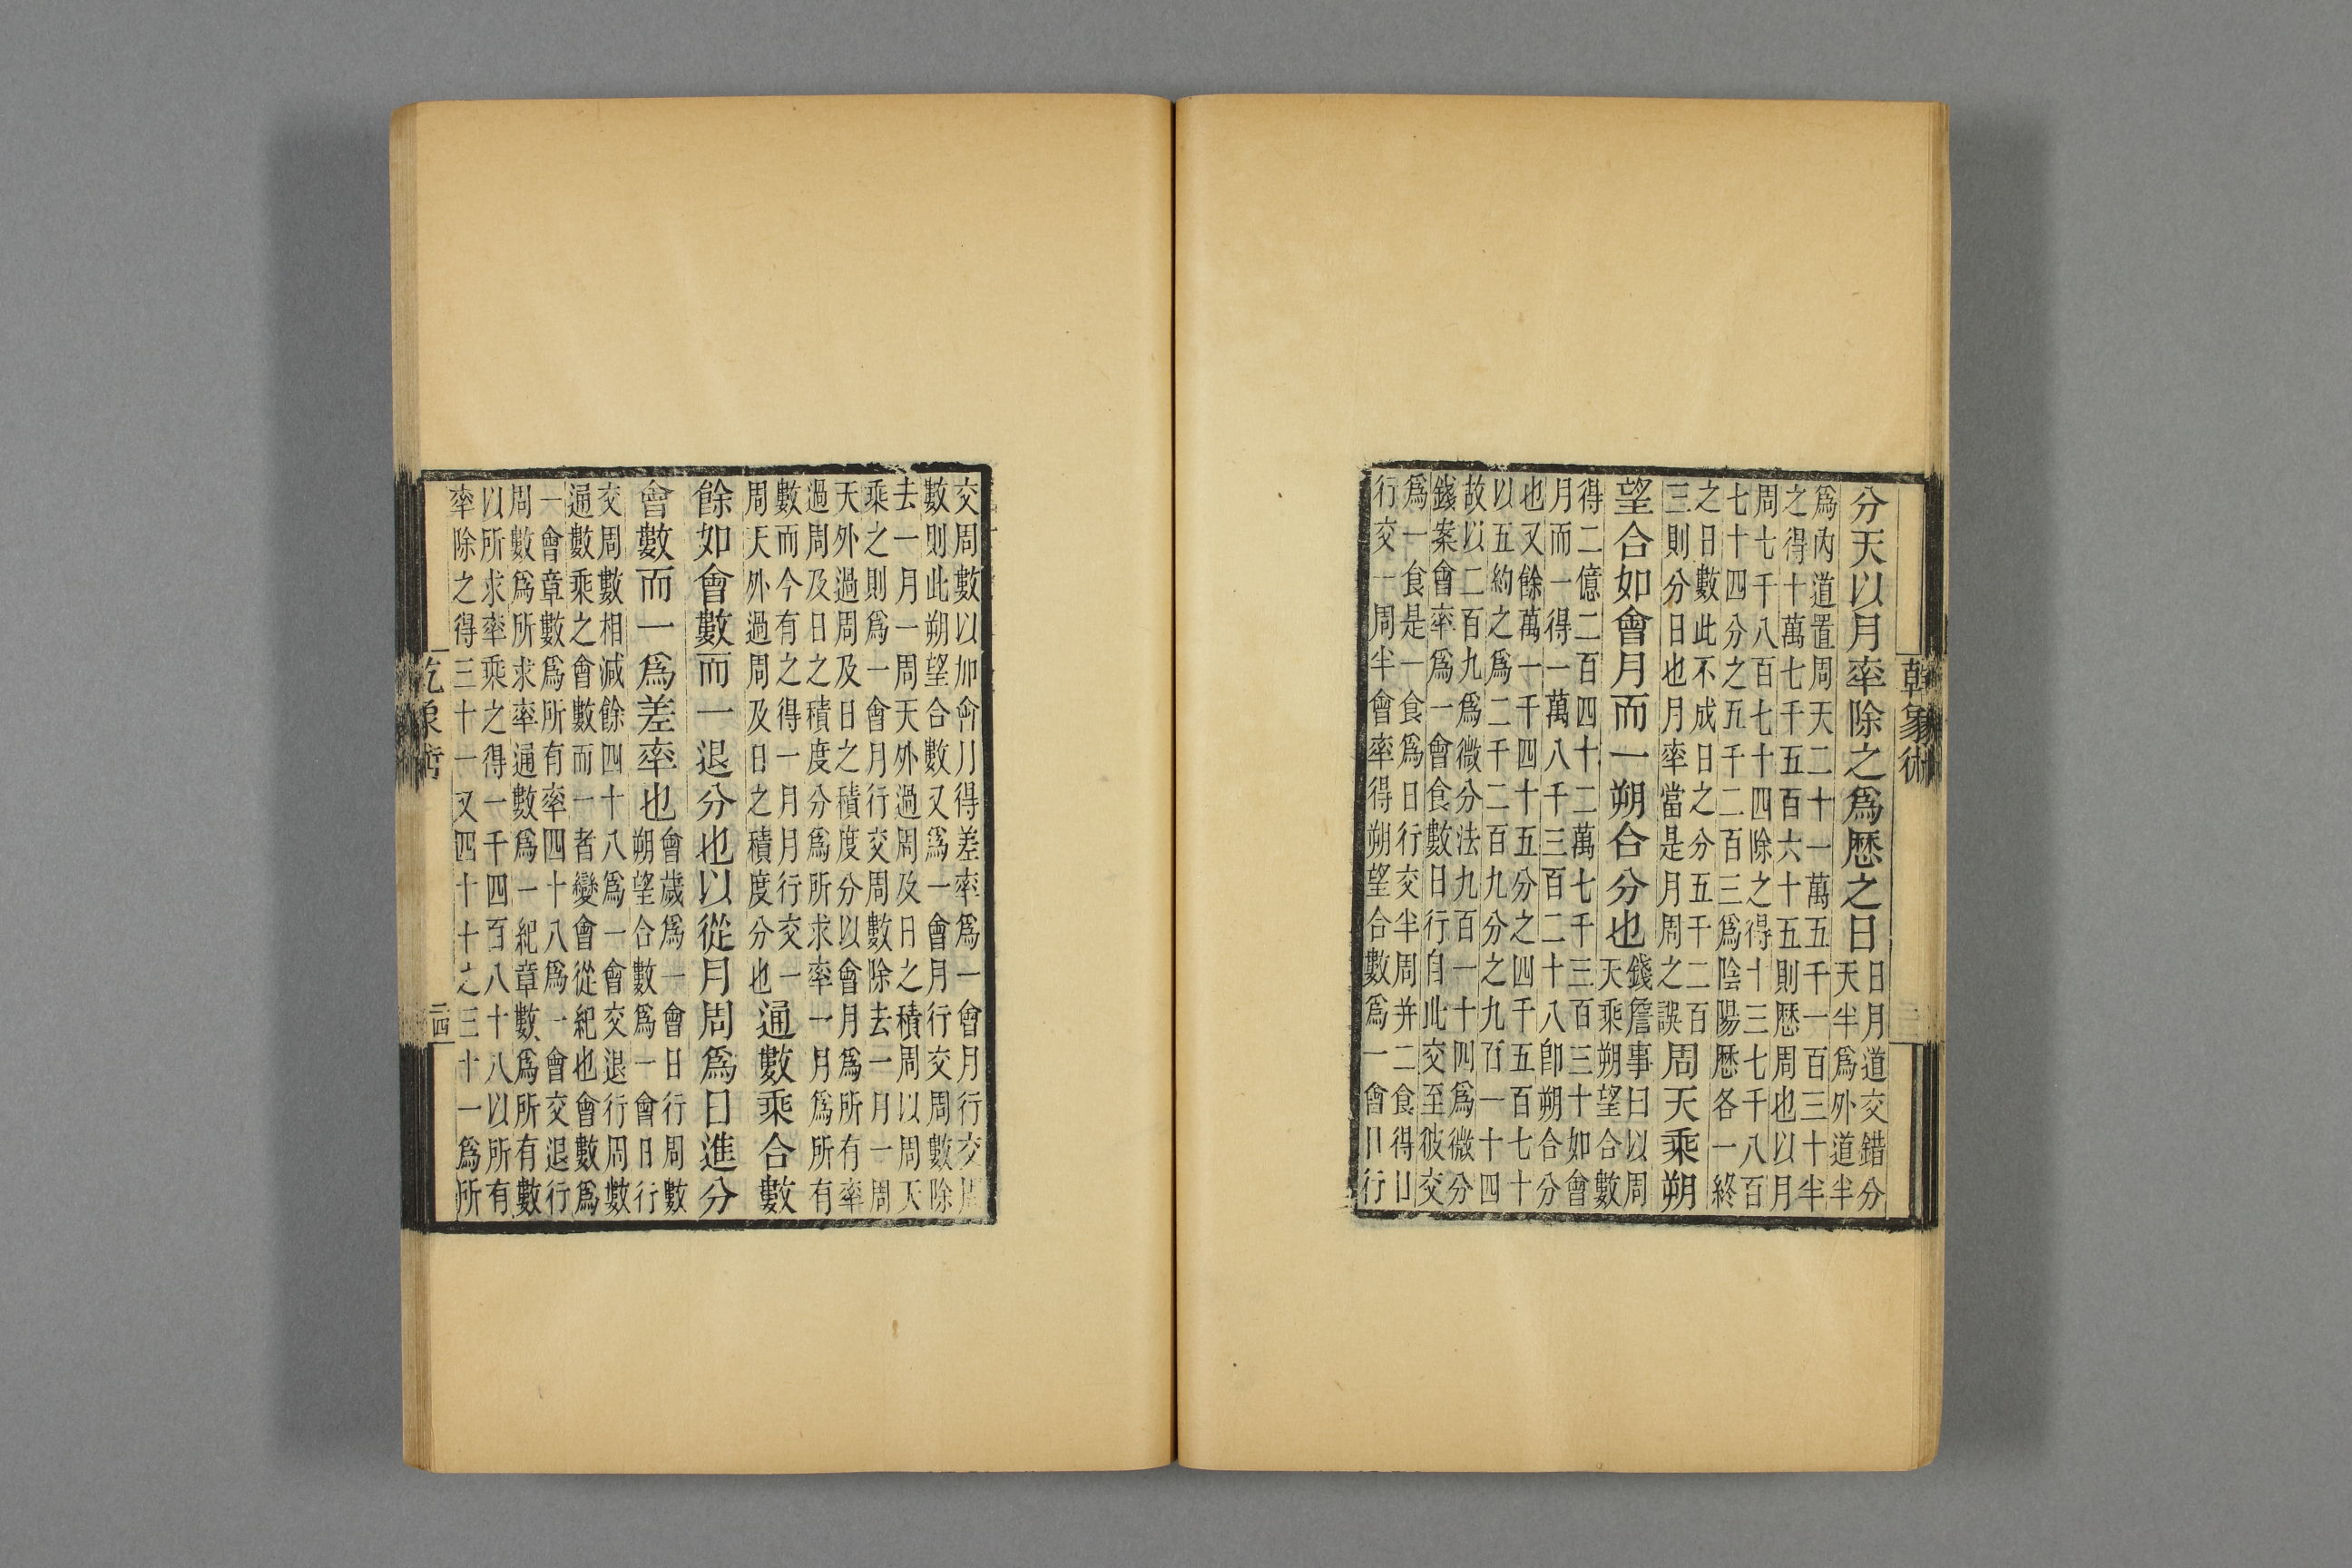 乾象術
分天以月率除之爲歷之日
日月道交錯分
天半爲外道半
爲内道置周天二十一萬五千一百三十半
之得十萬七千五百六十五則歷周也以月
周七千八百七十四除之得十三七千八百
七十四分之五千二百三爲陰陽歷各一終
之日數此不成日之分五千二百
三則分日也月率當是月周之誤
周天乘朔
望合如會月而一朔合分也
錢詹事曰以周
天乘朔望合數
得二億二百四十二萬七千三百三十如會
月而一得一萬八千三百二十八卽朔合分
也又餘萬一千四十五分之四千五百七十
以五約之爲二千二百九分之九百一十四
故以二百九爲微分法九百一十四爲微分
錢案會率爲一會食數日行自此交至彼交
爲一食是一食爲日行交半周并二食得日
行交一周半會率得朔望合數爲一會日行
交周數以加會月得差率爲一會月行交周
數則此朔望合數又爲一會月行交周數除
去一月一周天外過周及日之積周以周天
乘之則爲一會月行交周數除去一月一周
天外過周及日之積度分以會月爲所有率
過周及日之積度分爲所求率一月爲所有
數而今有之得一月月行交一
周天外過周及日之積度分也
通數乘合數
餘如會數而一退分也以從月周爲日進分
會數而一爲差率也
會歲爲一會日行周數
朔望合數爲一會日行
交周數相減餘四十八爲一會交退行周數
通數乘之會數而一者變會從紀也會數爲
一會章數爲所有率四十八爲一會交退行
周數爲所求率通數爲一紀章數爲所有數
以所求率乘之得一千四百八十八以所有
率除之得三十一又四十十之三十一爲所
乾象術